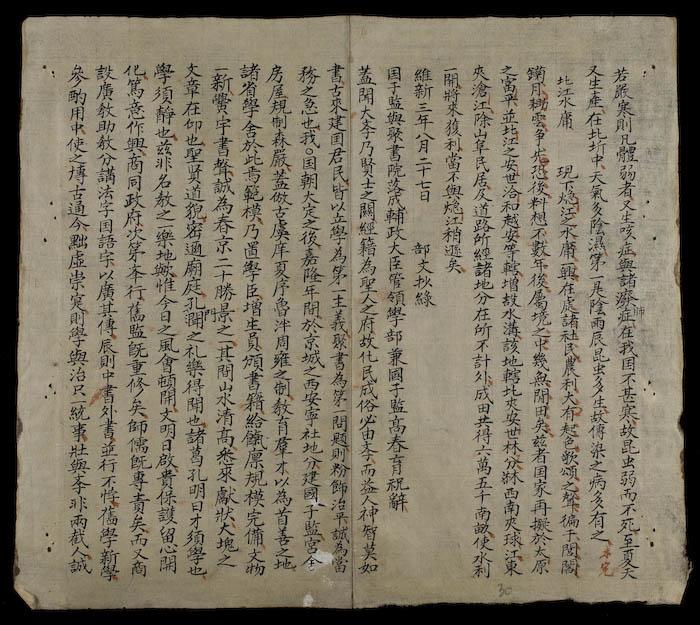 若嚴寒則凡體弱者又生咳症與諸瘵症在我国不甚寒故昆虫弱而不死至夏天
又生産在北圻中天氣多陰濕第一是陰雨辰昆虫多生故傳染之病多有之 未完
北江水庸 現下㶞江之水庸興在處諸社民農利大有起色歌頌之聲徧于閭閻
鋤月耕雲爭先恐後料想不數年後属境之中幾無閒田矣兹者国家再擬於太原
之富平並北江之安世洽和越安等轄增㧽水溝該地轄北夾安世林分狀西南夾球江東
夾滄江除山阜民居及道路所經諸地分在所不計外成田共得六萬五千南畝使水利
一開將來獲利當不與㶞江稍遜矣
維新三年八月二十七日 部文抄錄
国子監與聚書院落成輔政大臣管領學部兼國子監高春育祝辭
蓋聞大李乃賢士之關經籍為聖人之府故化民成俗必由李而益人神智莫如
書古來建国君民皆以立學為第一主義聚書為第一問題則粉飾治平誠為當
務之急也我○国朝大定之後嘉隆年間於京城之西安寧社地分建國子監宮全
房屋規制森嚴蓋倣古虞庠夏序魯泮周雍之制教育羣才以為首善之地
諸省學舎於此焉範模乃置學臣增生員頒書籍給餼廪規模完備文物
一新黌宇書聲誠為春京二十勝景之一其門山水清高悉來献狀大塊之
文章在仰也聖賢道貌密邇廟庭孔門之礼樂得聞也諸葛孔明曰才須學也
學須靜也兹非名教之樂地與惟今日之風會頓開文明日啟貴保護留心開
化篤意作興商同政府次第奉行舊監既重修矣師儒既專責矣而又商
設廣教助教分講法字国語字以廣其傳辰則中書外書並行不悖舊學新學
參酌用中使之博古通今黜虛崇寔則學與治只一統事壯與李非兩截人誠